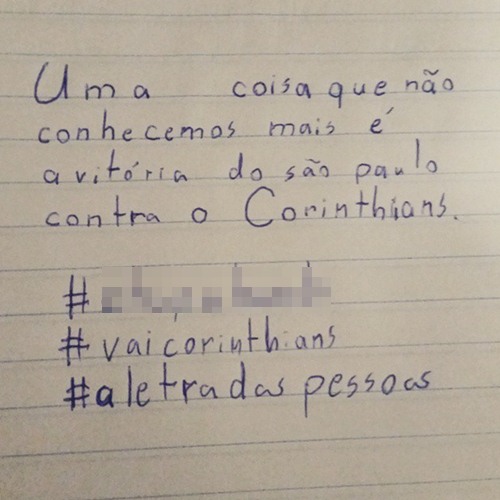 Uma coisa que não
conhecemos mais é
a vitória do são paulo
contra o Corinthians.
#
#vaicorinthians
#aletradas pessoas